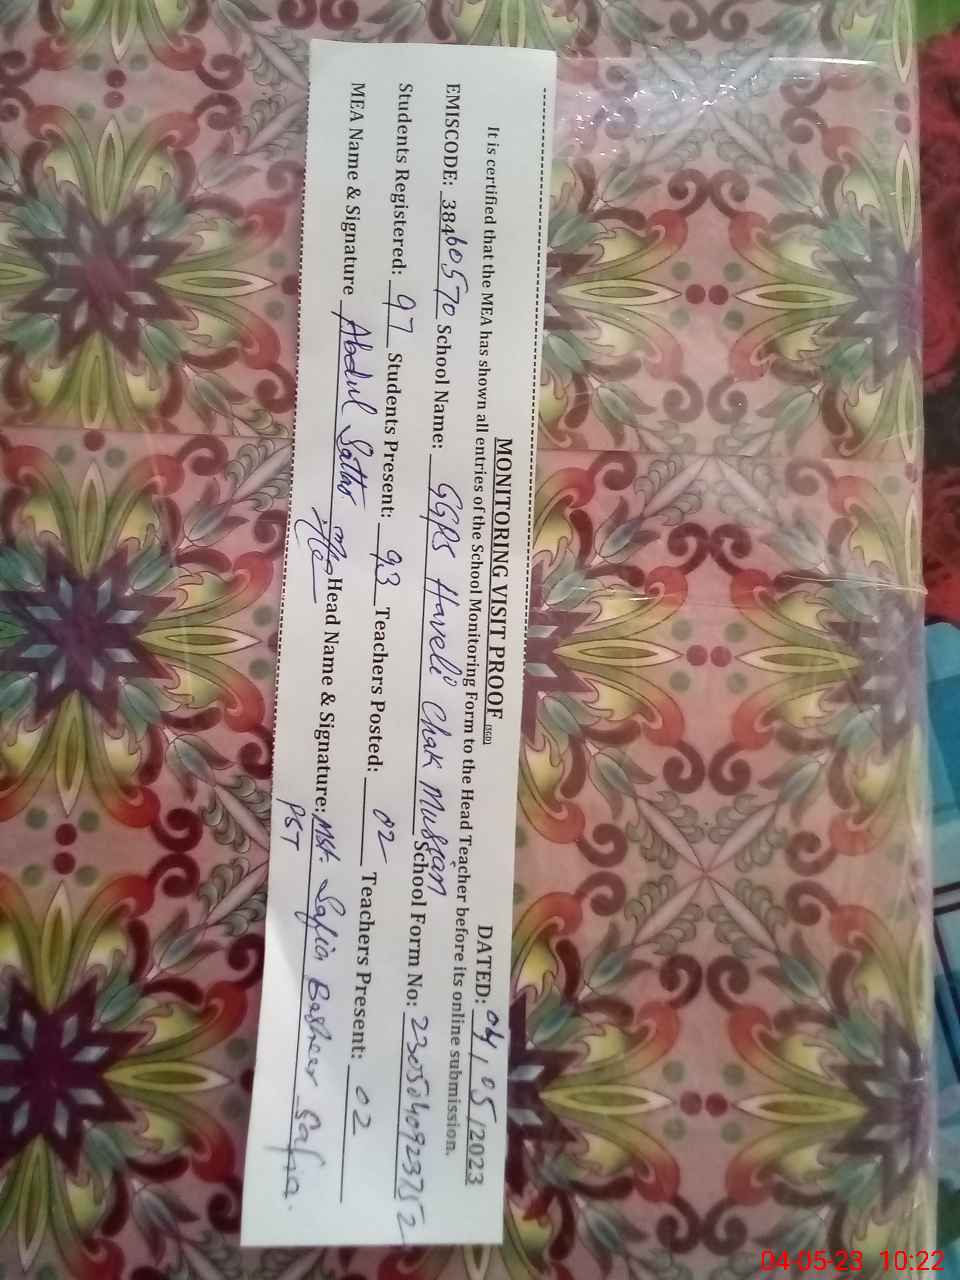 MONITORING VISIT PROOF (SGD) DATED: 04/05/2023
It is certified that the MEA has shown all entries of the School Monitoring Form to the Head Teacher before its online submission.
EMISCODE: 38460570 School Name: GGPS Haveli Chak Mussan School Form No: 2305040923752
Students Registered: 97 Students Present: 93 Teachers Posted: 02 Teachers Present: 02
MEA Name & Signature Abdul Sattar Head Name & Signature: Mst. Safia Basheer Safia
PST
04-05-23 10:22